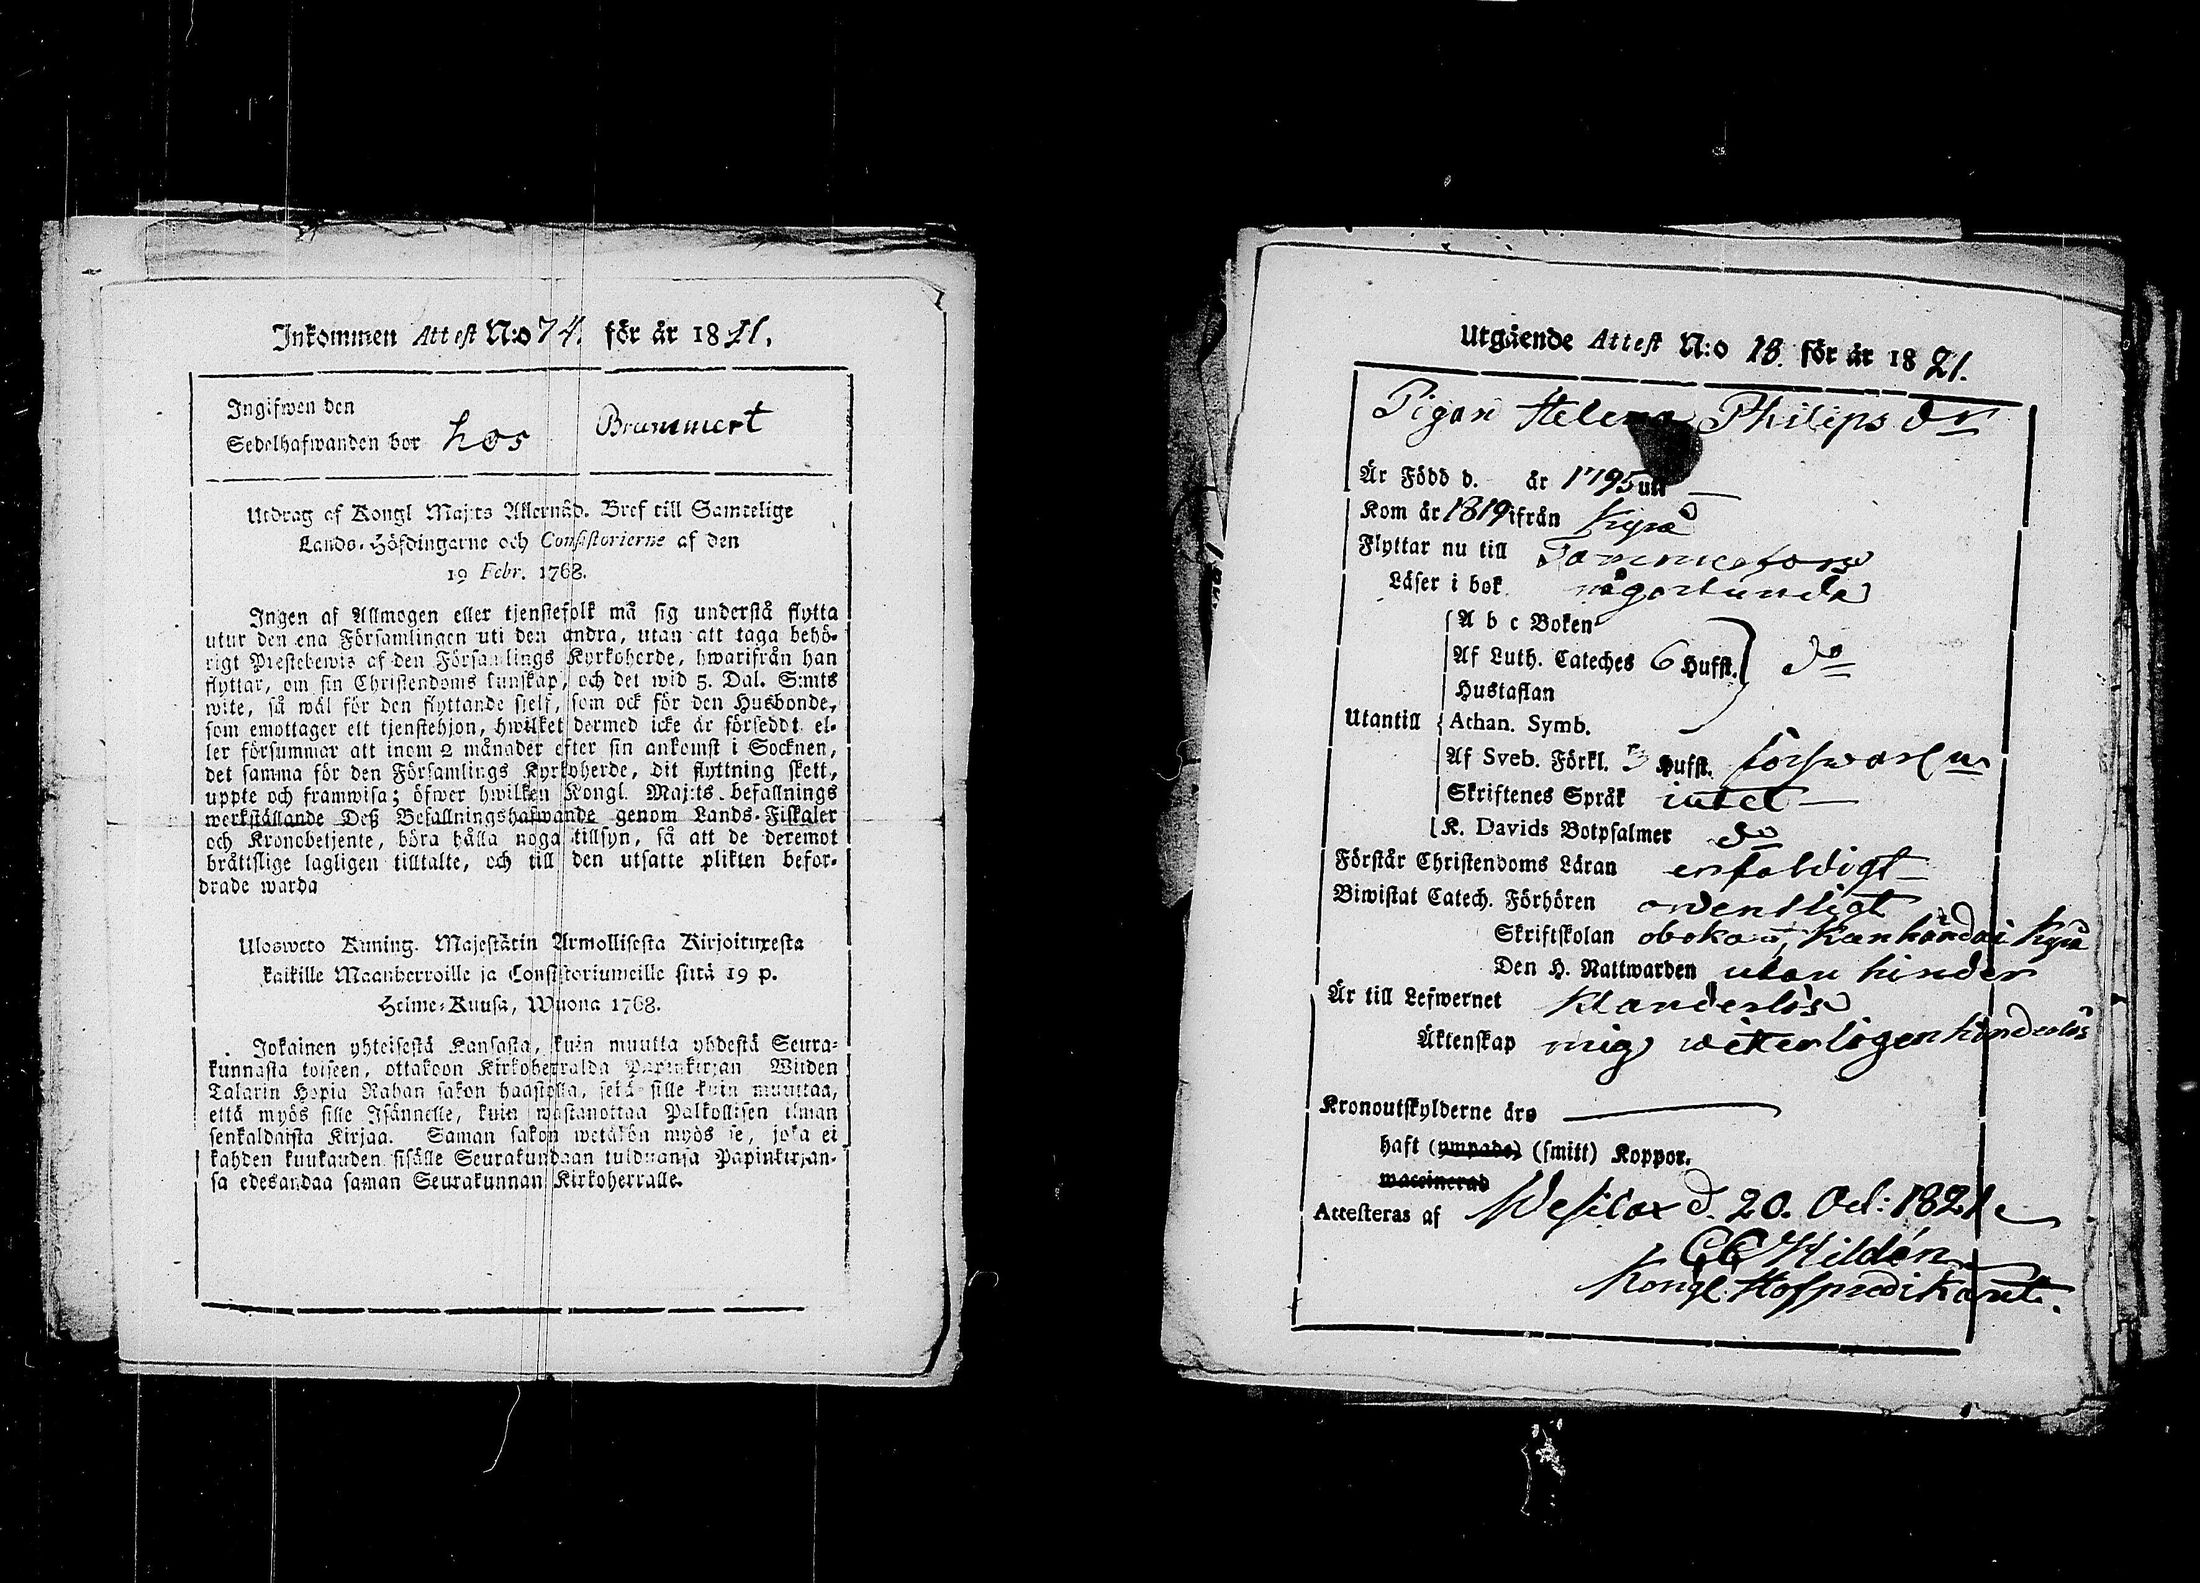 Inkommen Attest N:o 74. för år 1821.
Ingifwen den
Sedelhafwanden bor hos Brummert
Utdrag af Kongl Maj:ts Allernåd. Bref till Samtelige
Lands-Höfdingarne och Consistorierne af den
19 Febr. 1768.
Ingen af Allmogen eller tjenstefolk må sig understå flytta
utur den ena Församlingen uti den andra, utan att taga behö-
rigt Prestebewis af den Församlings Kyrkoherde, hwarifrån han
flyttar, om sin Christendoms kunskap, och det wid 5. Dal. S:mts
wite, så wäl för den flyttande sjelf, som ock för den Husbonde,
som emottager ett tjenstehjon, hwilket dermed icke är förseddt el-
ler försummar att inom 2 månader efter sin ankomst i Socknen,
det samma för den Församlings Kyrkoherde, dit flyttning skett,
uppte och framwisa; öfwer hwilken Kongl. Maj:ts befallnings
werkställande Deß Befallningshafwande genom Lands-Fiskaler
och Kronobetjente, böra hålla noga tillsyn, så att de deremot
bråttslige lagligen tilltalte, och till den utsatte plikten befor-
drade warda
Uloswето Kuning. Majestätin Armollisesta Kirjoituxesta
kaikille Maanherroille ja Consistoriumeille siitä 19 p.
Helme-Kuusa, Wuona 1768.
Jokainen yhteisestä Kansasta, kuin muutta yhdestä Seura-
kunnasta toiseen, ottakoon Kirkoherralda Papinkirjan Wiiden
Talarin Hopia Rahan sakon haastolla, sekä sille kuin muuttaa,
että myös sille Isännelle, kuin wastanottaa Palkollisen ilman
senkaldaista Kirjaa. Saman sakon wetäkön myös se, joka ei
kahden kuukauden sisälle Seurakundaan tulduansa Papinkirjan-
sa edesandaa saman Seurakunnan Kirkoherralle.
Utgående Attest N:o 18. för år 1821.
Pigan Helena Philips dr
Är Född d. år 1795 uti
Kom år 1819 ifrån Kyro
Flyttar nu till Tammerfors
Läser i bok någorlunda
A b c Boken
Af Luth. Cateches 6 Hufst. do
Hustaflan
Utantill Athan. Symb.
Af Sveb. Förkl. 3 Hufst. förswarl:n
Skriftenes Språk intet
K. Davids Botpsalmer do
Förstår Christendoms Läran enfaldigt
Biwistat Catech. Förhören ordentligt
Skriftskolan obokad, Kanhända i Kyro
Den H. Nattwarden utan hinder
Är till Lefwernet klanderlös
Äktenskap mig weterligen hinderlös
Kronoutskylderne äro
haft (ympade) (smitt) Koppor.
waccinerad
Attesteras af Wesilax d. 20. Oct: 1821
CC Hildén
Kongl. Hofpredikant.